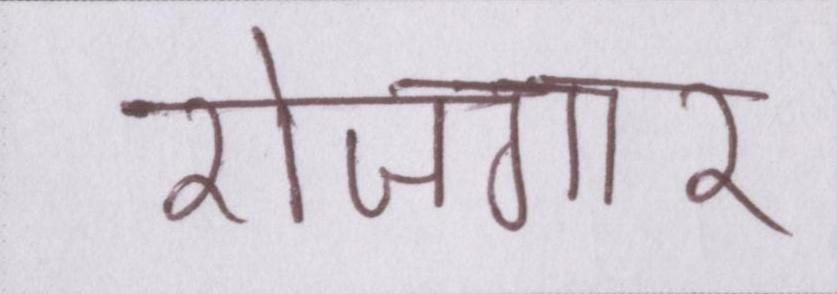 रोजगार